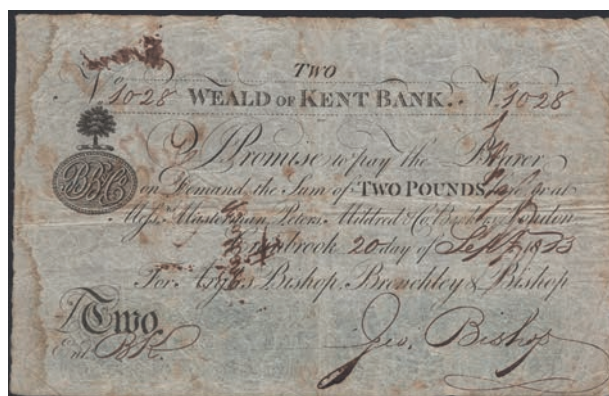 TWO
No 1028 WEALD OF KENT BANK. No 1028
BB&Co
I Promise to pay the Bearer
on Demand the Sum of TWO POUNDS, here or at
Messrs Masterman, Peters, Mildred & Co Bankers London
Cranbrook 20 day of Sept 18
For Bishop, Brenchley & Bishop
£ Two
Entd BK
Geo. Bishop